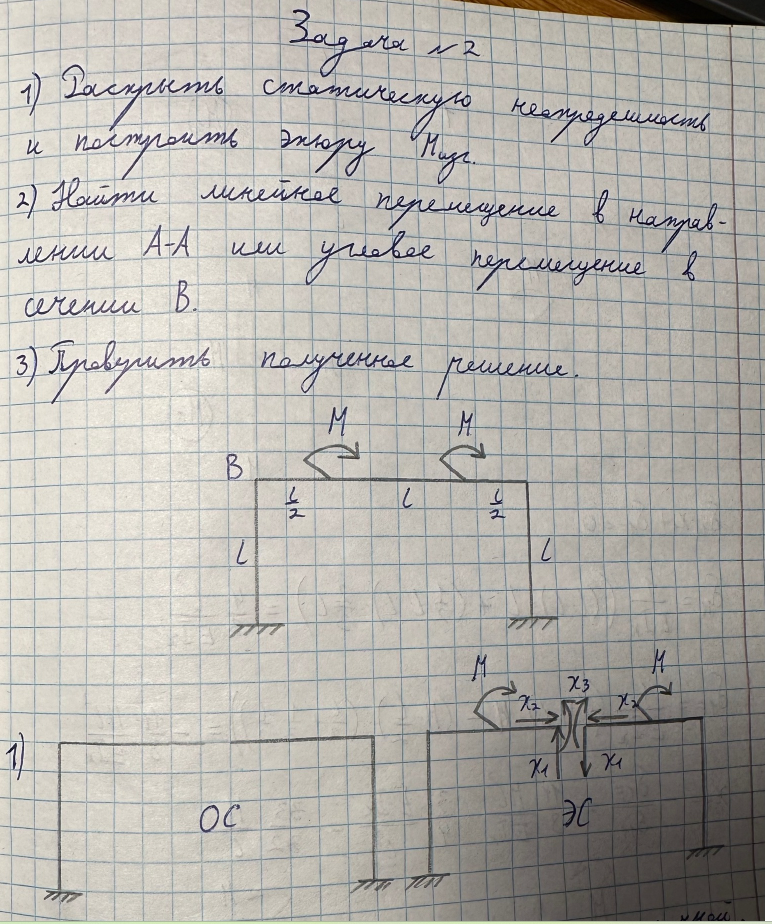 Задача №2
1) Раскрыть статическую неопределимость
и построить эпюру Mизг.
2) Найти линейное перемещение в направ-
лении А-А или угловое перемещение в
сечении В.
3) Проверить полученное решение.
M M
B
l/2 l l/2
l l
M x3 M
x2 x2
1)
x1 x1
ОС ЭС